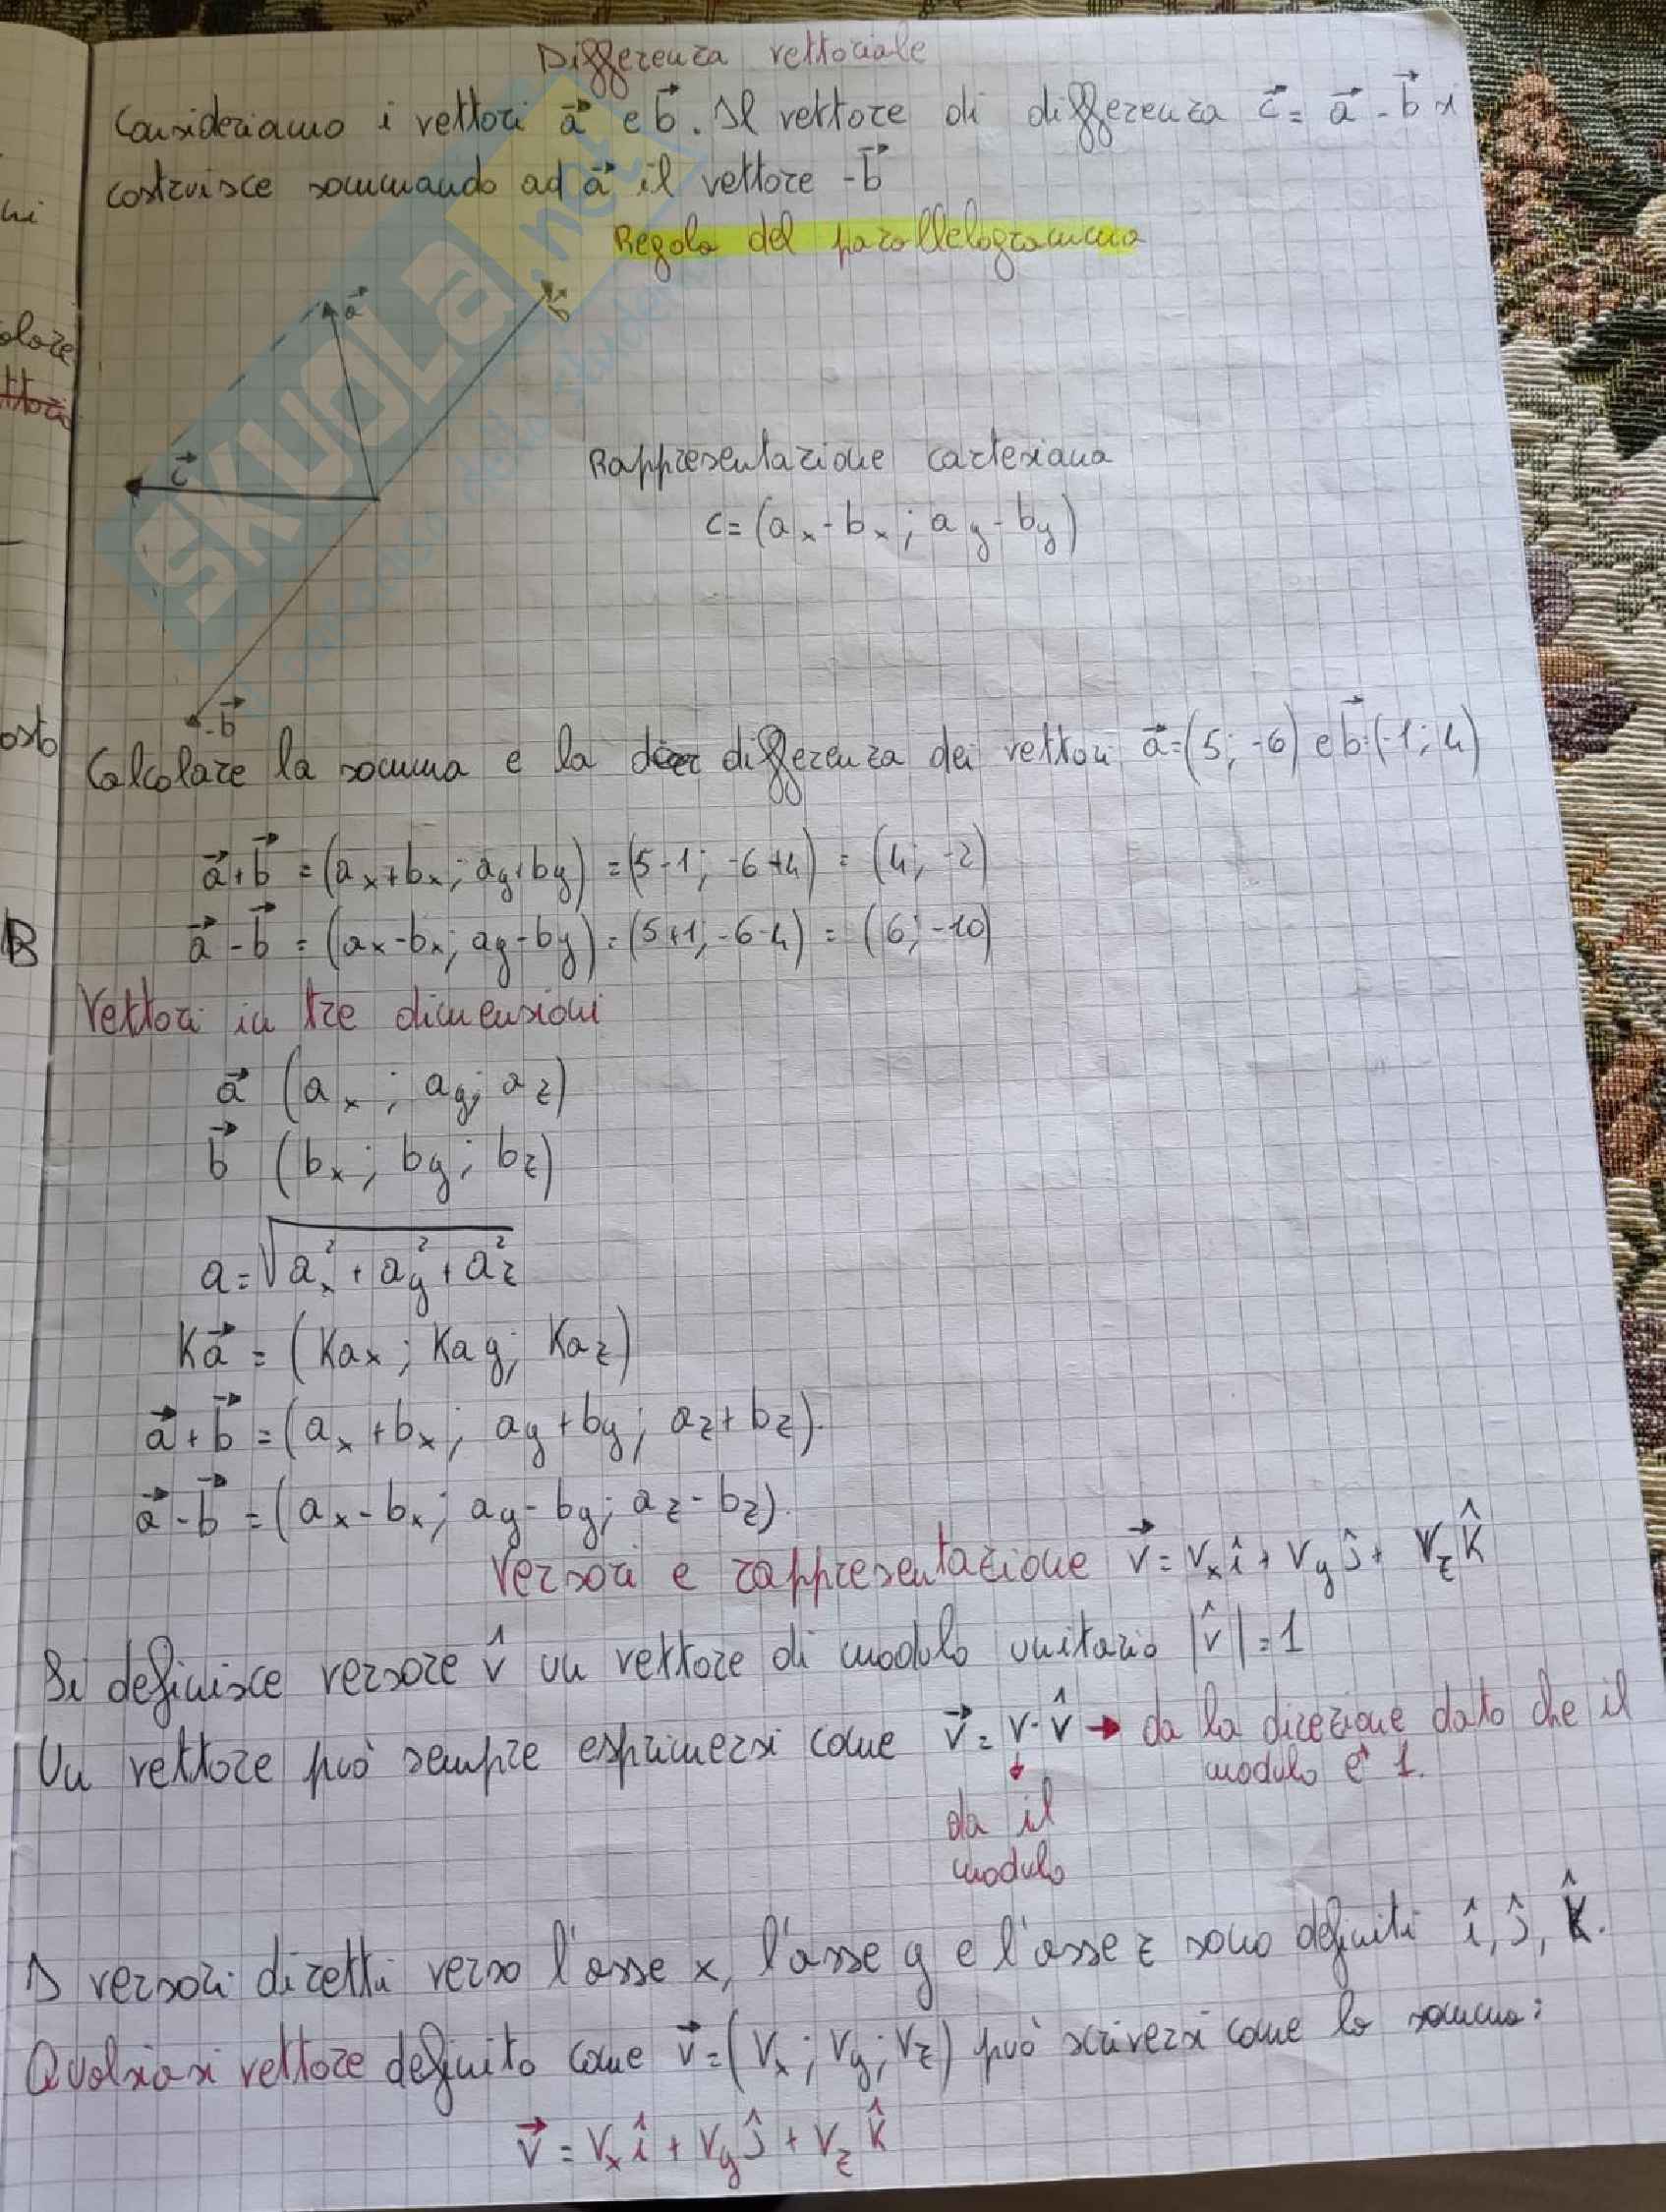 Differenza vettoriale
Consideriamo i vettori a⃗ e b⃗. Il vettore di differenza c⃗ = a⃗ - b⃗ si
costruisce sommando ad a⃗ il vettore -b⃗
Regola del parallelogramma
a⃗
b⃗
SKUOLA.net
c⃗
Rappresentazione cartesiana
c = (ax - bx ; ay - by)
-b⃗
Calcolare la somma e la differenza dei vettori a⃗ = (5; -6) e b⃗ = (-1; 4)
a⃗ + b⃗ = (ax + bx; ay + by) = (5-1; -6+4) = (4; -2)
a⃗ - b⃗ = (ax - bx; ay - by) = (5+1; -6-4) = (6; -10)
Vettori in tre dimensioni
a⃗ (ax ; ay; az)
b⃗ (bx ; by ; bz)
a = √(ax² + ay² + az²)
Ka⃗ = (Kax ; Kay; Kaz)
a⃗ + b⃗ = (ax + bx ; ay + by ; az + bz).
a⃗ - b⃗ = (ax - bx ; ay - by; az - bz).
Versori e rappresentazione v⃗ = vx î + vy ĵ + Vz K̂
Si definisce versore v̂ un vettore di modulo unitario |v̂| = 1
Un vettore può sempre esprimersi come v⃗ = v·v̂ → da la direzione dato che il
modulo è 1.
da il
modulo
I versori diretti verso l'asse x, l'asse y e l'asse z sono definiti î, ĵ, K̂.
Qualsiasi vettore definito come v⃗ = (Vx ; Vy ; Vz) può scriversi come la somma:
v⃗ = Vx î + Vy ĵ + Vz K̂